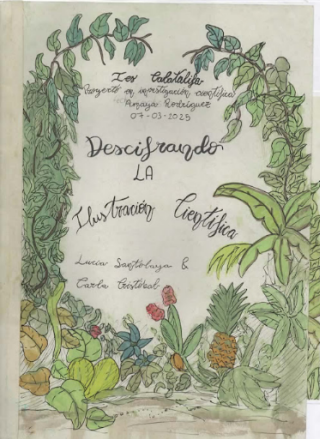 Ies Calatalifa
Proyecto en investigación científica
Amaya Rodríguez
07-03-2025
Descifrando
LA
Ilustración Científica
Lucía Santolaya &
Carla Cristóbal